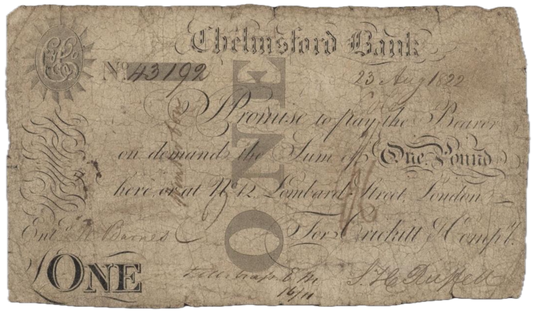 Chelmsford Bank
No. 43192
23 Aug 1822
I Promise to pay the Bearer
on demand the Sum of One Pound
here or at No. 72 Lombard Street, London
For Crickitt & Compy.
Entd.
ONE
ONE